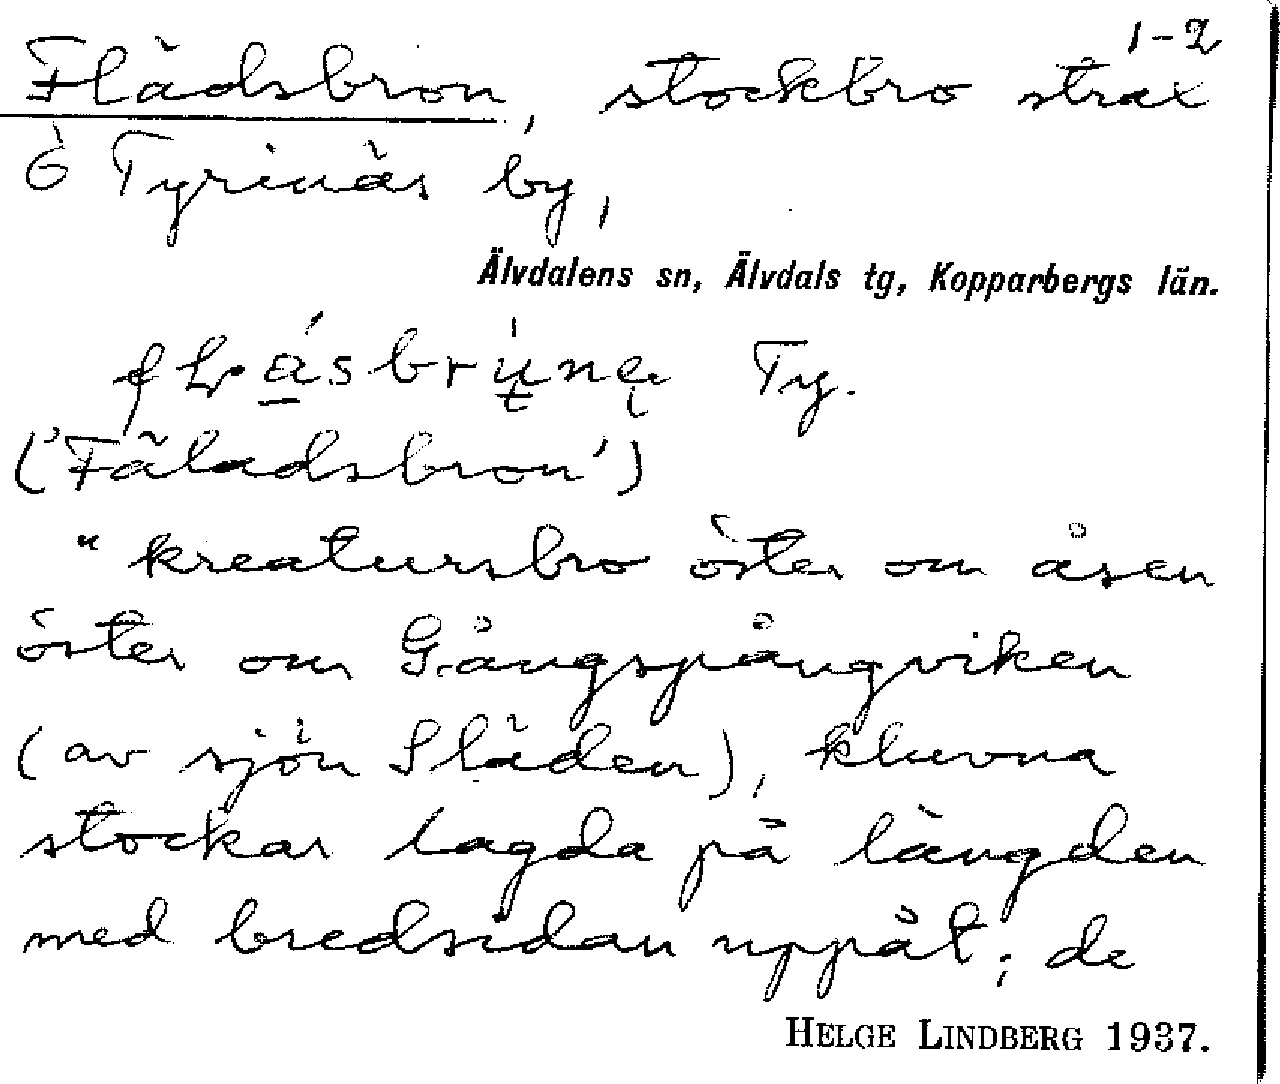 1-2
Flädsbron, stockbro strax
ö Tyrinäs by,
Älvdalens sn, Älvdals tg, Kopparbergs län.
Ty.
('Fäladsbron')
"kreatursbro öster om åsen
öster om Gångspångviken
(av sjön Släden), kluvna
stockar lagda på längden
med bredsidan uppåt; de
HELGE LINDBERG 1937.